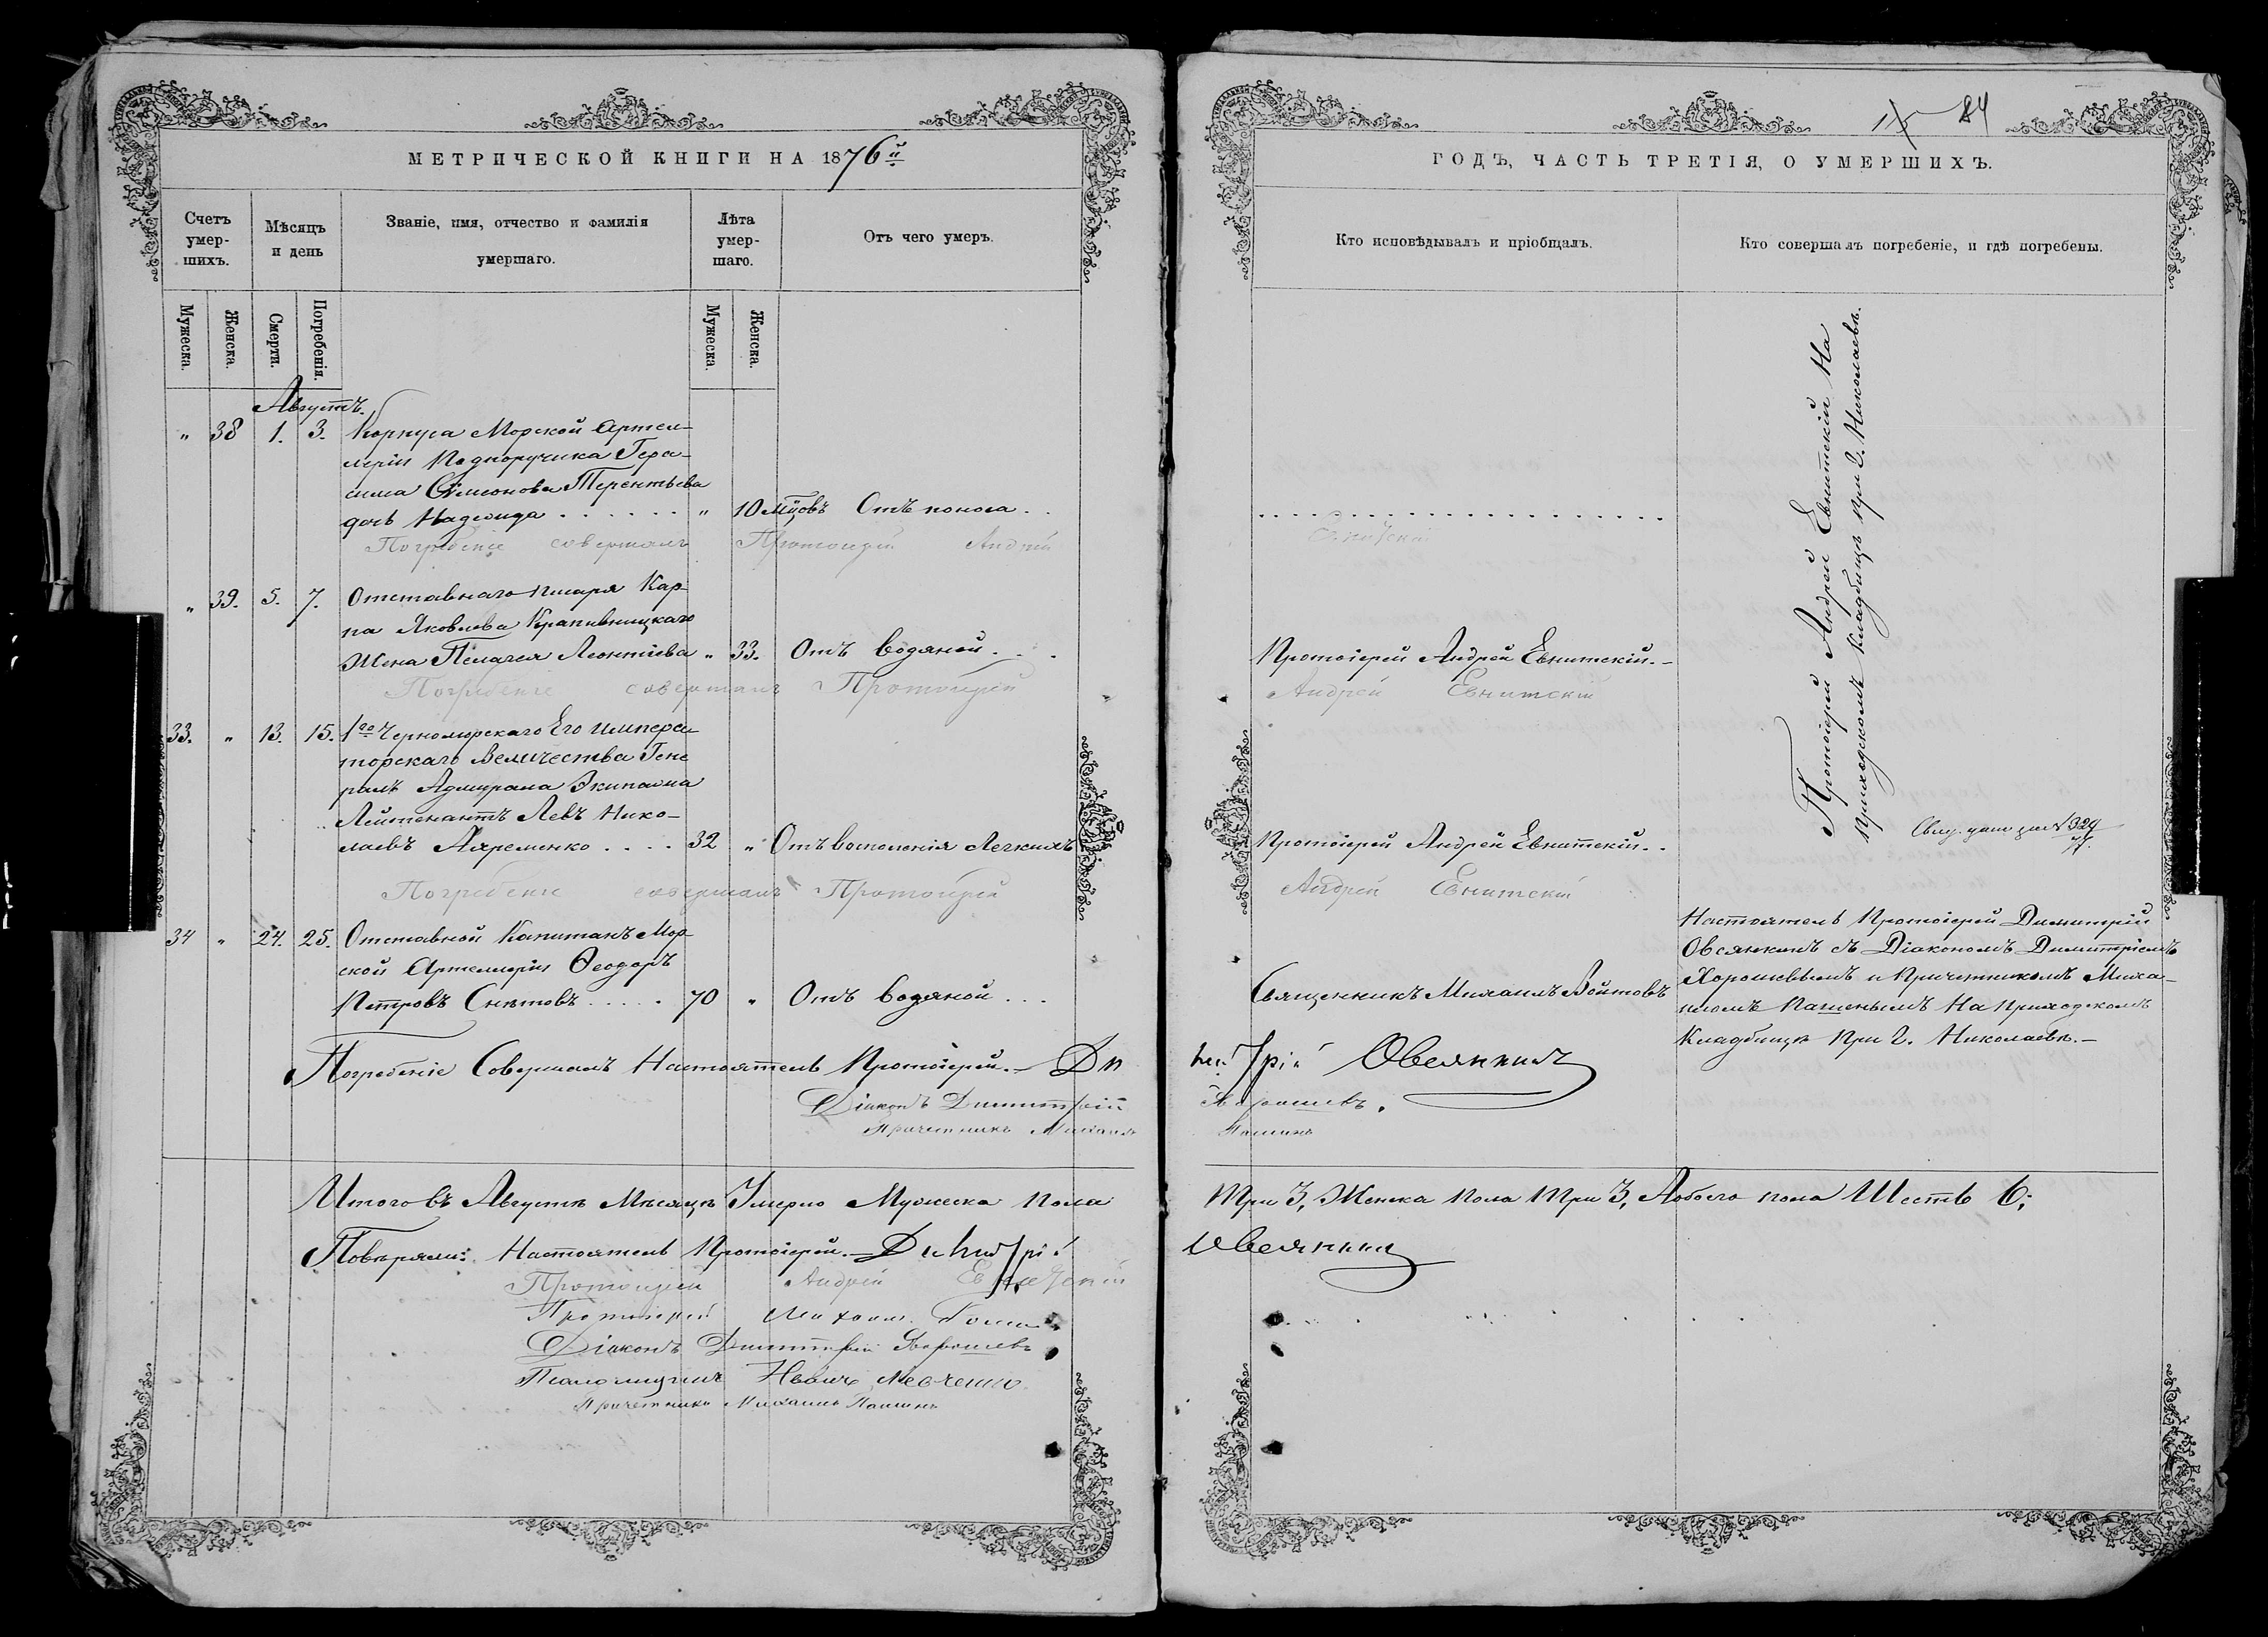 МЕТРИЧЕСКОЙ КНИГИ НА 1876й
Счетъ умер-шихъ.
Мѣсяцъ и день
Званіе, имя, отчество и фамилія умершаго.
Лѣта умер-шаго.
Отъ чего умеръ.
Мужеска.
Женска.
Смерти.
Погребенія.
Мужеска.
Женска.
Августъ.
" 38 1. 3. Корпуса Морской Артил-
леріи Подпоручика Гера-
сима Симеонова Терентьева
дочь Надежда . . . . . . " 10 мцовъ Отъ поноса . .
Погребеніе совершалъ Протоіерей Андрей
" 39. 5. 7. Отставнаго писаря Кар-
па Яковлева Крапивницкаго
Жена Пелагея Леонтіева " 33. Отъ водяной . . .
Погребеніе совершалъ Протоіерей
33. " 13. 15. 1го Черноморскаго Его Импера
торскаго Величества Гене
ралъ Адмирала Экипажа
Лейтенантъ Левъ Нико-
лаевъ Яхременко . . . . 32 " Отъ воспаленія Легкихъ
Погребеніе совершалъ Протоіерей
34 " 24. 25. Отставной Капитанъ Мор-
ской Артиллеріи Ѳеодоръ
Петровъ Снѣтовъ . . . . . 70 " Отъ водяной . . .
Погребеніе Совершалъ Настоятель Протоіерей.— Ди
Діаконъ Димитрій
Причетникъ Михаилъ
Итого въ Августѣ Мѣсяцѣ Умерло Мужеска пола
Повѣряли: Настоятель Протоіерей.— Димитрій
Протоіерей Андрей Евнитскій
Протоіерей
Діаконъ Димитрій Хорошевъ
Псаломщикъ
Причетникъ Михаилъ Пашинъ
15 84
ГОДЪ, ЧАСТЬ ТРЕТІЯ, О УМЕРШИХЪ.
Кто исповѣдывалъ и пріобщалъ.
Кто совершалъ погребеніе, и гдѣ погребены.
Протоіерей Андрей Евнитскій На
приходскомъ Кладбищѣ при г. Николаевѣ.
Евнитскій
Протоіерей Андрей Евнитскій.—
Андрей Евнитскій
Протоіерей Андрей Евнитскій. .
Свид. дано за № 329
Андрей Евнитскій
Священникъ Михаилъ Войтовъ
Настоятель Протоіерей Димитрій
Овсянкинъ съ Діакономъ Димитріемъ
Хорошевымъ и Причетникомъ Миха-
иломъ Пашенымъ На Приходскомъ
Кладбищѣ При г. Николаевѣ.—
митрій Овсянкинъ
Хорошевъ.
Пашинъ
Три 3, Женска пола три 3, Обоего пола Шесть 6;
Овсянкинъ